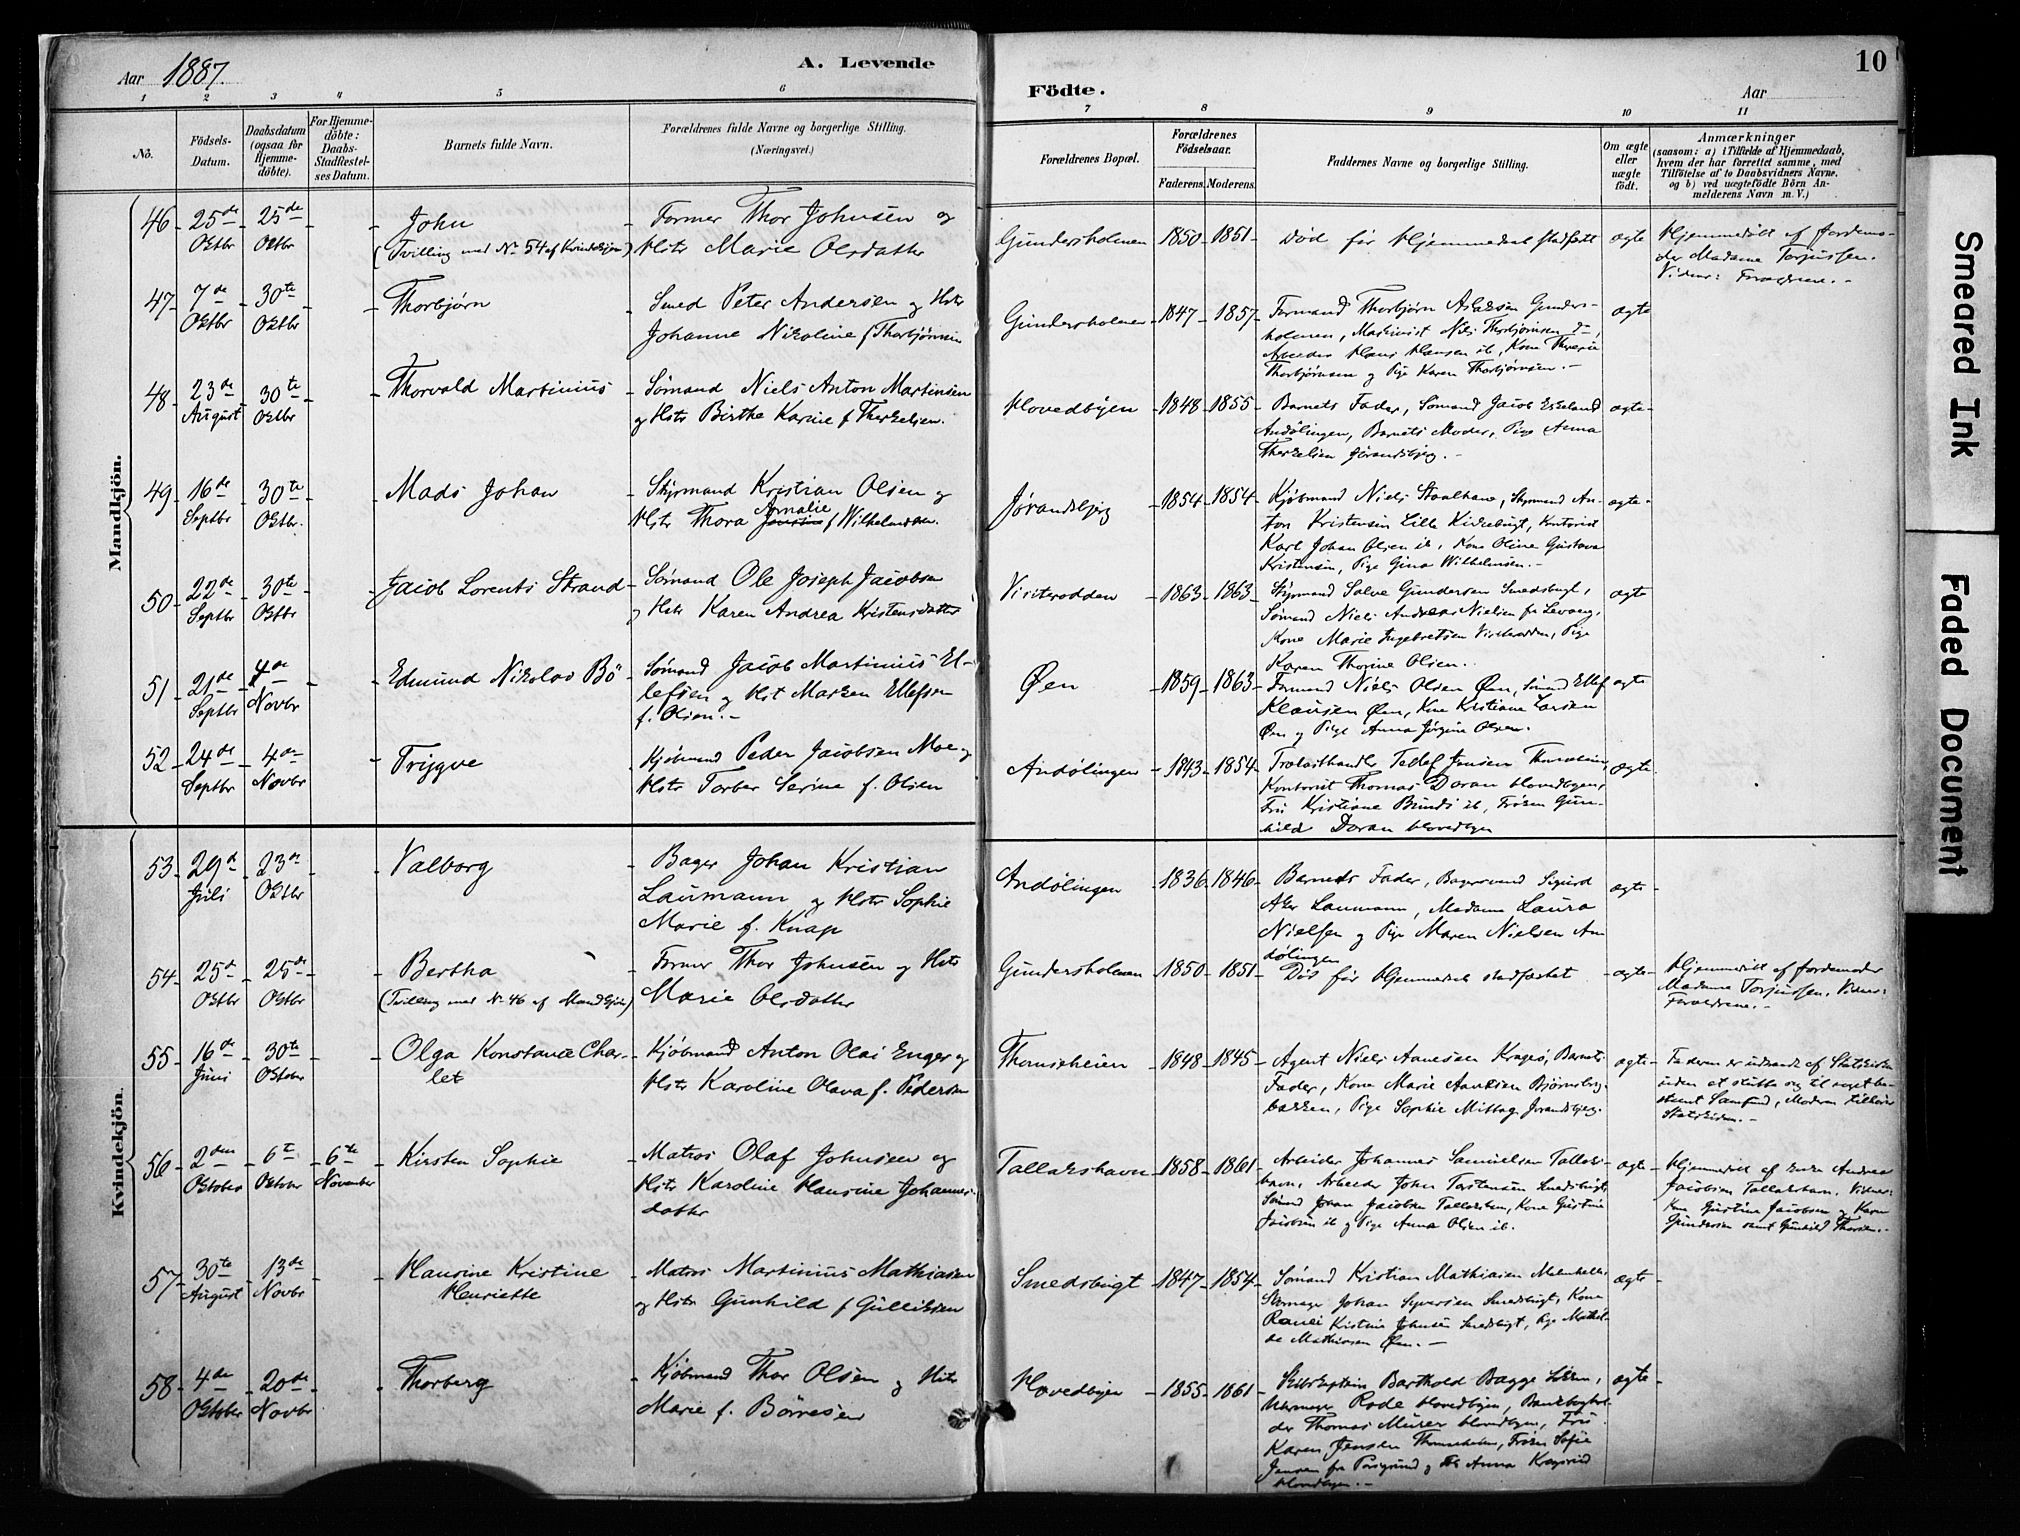 Aar 1887.
A. Levende
Födte.
Aar
10
1 2 3 4 5 6 7 8 9 10 11
No.
Födsels-
Datum.
Daabsdatum
(ogsaa for
Hjemme-
döbte).
For Hjemme-
döbte:
Daabs-
Stadfæstel-
ses Datum.
Barnets fulde Navn.
Forældrenes fulde Navne og borgerlige Stilling.
(Næringsvei.)
Forældrenes Bopæl.
Forældrenes
Födselsaar.
Faderens. Moderens.
Faddernes Navne og borgerlige Stilling.
Om ægte
eller
uægte
födt.
Anmærkninger
(saasom: a) i Tilfælde af Hjemmedaab,
hvem der har forrettet samme, med
Tilföielse af to Daabsvidners Navne,
og b) ved uægtefödte Börn An-
melderens Navn m. V.)
Mandkjön.
46 25de Oktbr 25de Oktbr
John
(Tvilling med No 54 af Kvindekjön)
Former Thor Johnsen og
Hstr Marie Olsdatter
Gundersholmen 1850 1851
Död för Hjemmedaab stadfæstet
ægte
Hjemmedöbt af Jordemo-
der Madame Torjussen.
Vidner: Forældrene.
47 7de Oktbr 30te Oktbr
Thorbjørn
Smed Peter Andersen og Hstr
Johanne Nikoline f. Thorbjørnsen
Gundersholmen 1847 1857
Formand Thorbjørn Aslaksen Gunders-
holmen, Maskinist Niels Thorbjørnsen
Arbeider Hans Hansen ib, Kone Theresie
Thorbjørnsen og Pige Karen Thorbjørnsen.
ægte
48 23de August 30te Oktbr
Thorvald Martinius
Sømand Niels Anton Martinsen
og Hstr Birthe Karine f. Therkelsen.
Hovedbyen 1848 1855
Barnets Fader, Sømand Jacob Eskeland
Andölingen, Barnets Moder, Pige Anna
Therkelsen Jørandsbjerg.
ægte
49 16de Septbr 30te Oktbr.
Mads Johan
Styrmand Kristian Olsen og
Hstr Thora Amalie f Wilhelmsen.
Jørandsbjerg 1854 1854
Kjøbmand Niels Staalhane, Styrmand An-
ton Kristensen Lille Kirkebugt, Kontorist
Karl Johan Olsen ib, Kone Oline Gustava
Kristensen, Pige Gina Wilhelmsen.
ægte
50 22de Septbr 30te Oktbr
Jacob Lorents Strand
Sømand Ole Joseph Jacobsen
og Hstr Karen Andrea Kristensdatter
Vissterodden 1863 1863
Styrmand Salve Gundersen Smedsbugt,
Sømand Niels Andreas Nielsen fr Levang,
Kone Marie Ingebretsen, Pige
Karen Thorine Olsen.
ægte
51 21de Septbr 4de Novbr
Edmund Nikolas Bö
Sømand Jacob Martinius El-
lefsen og Hst Marken Ellefsen
f. Olsen.
Øen 1859 1863
Formand Niels Olsen Øen, Sømand Ellef
Klausen Øen, Kone Kristiane Larsen
Øen og Pige Anna Jørgine Olsen.
ægte
52 24de Septbr 4de Novbr
Tryggve
Kjøbmand Peder Jacobsen Moe og
Hstr Torber Serine f. Olsen
Andölingen 1843 1854
Trælasthandler Tellef Jensen
Kontorist Thomas Doran Hovedbyen,
Fru Kristiane Bünds ib, Frøken Gun-
hild Doran Hovedbyen
ægte
Kvindekjön.
53 29d Juli 23de Oktbr
Valborg
Bager Johan Kristian
Laumann og Hstr Sophie
Marie f. Knap
Andölingen 1836 1846
Barnets Fader, Bagersvend Sigurd
Aker Laumann, Madame Laura
Nielsen og Pige Maren Nielsen An
dölingen
ægte
54 25d Oktbr 25de Oktbr
Bertha
(Tvilling med No 46 af Mandkjön)
Former Thor Johnsen og Hstr
Marie Olsdatter
Gundersholmen 1850 1851
Död för Hjemmedaab stadfæstet
ægte
Hjemmedöbt af Jordemoder
Madame Torjussen. Vidner:
Forældrene.
55 16de Juni 30te Oktober
Olga Konstance Char-
let
Kjøbmand Anton Olai Enger og
Hstr Karoline Olava f. Pedersen
Thomseheien 1848 1845
Agent Niels Aanesen Kragerø, Barnets
Fader, Kone Marie Aanesen Bjørnsberg
bakken, Pige Sophie Mittag Jorandsbjerg.
ægte
Faderen er udtraadt af Statskirken
uden at slutte sig til noget be-
stemt Samfund, Moderen tilhører
Statskirken.
56 2den Oktober 6te Oktober 6te November
Kirsten Sophie
Matros Olaf Johnsen og
Hstr Karoline Hansine Johannes-
datter
Tallakshavn 1858 1861
Arbeider Johannes Samuelsen Tallaks-
havn, Arbeider John Torstensen Smedsbugt,
Sømand Johan Jacobsen Tallakshavn, Kone Gustine
Jacobsen ib og Pige Anna Olsen ib.
ægte
Hjemmedöbt af Enke Andrea
Jacobsen Tallakshavn. Vidner:
Kone Gustine Jacobsen og Karen
Gundersen samt Gunhild
57 30te August 13de Novbr
Hansine Kristine
Henriette
Matros Martinius Mathiasen
og Hstr Gunhild f Gulliksen
Smedsbugt 1847 1854
Sømand Kristian Mathiasen
Skomager Johan Syversen Smedsbugt, Kone
Kristine Johnsen Smedsbugt, Pige Mathil-
de Mathiasen Øen.
ægte
58 4de Oktober 20de Novbr
Thorberg
Kjøbmand Thor Olsen og Hstr
Marie f. Børresen
Hovedbyen 1855 1861
Skibskaptein Barthold Bagge
Uhrmager Rode Hovedbyen, Bankboghol-
der Thomas Murer Hovedbyen, Fru
Karen Jensen Thomseheien, Frøken Sofie
Jensen fra Porsgrund og Anna
Hovedbyen.
ægte
Smeared Ink
Faded Document